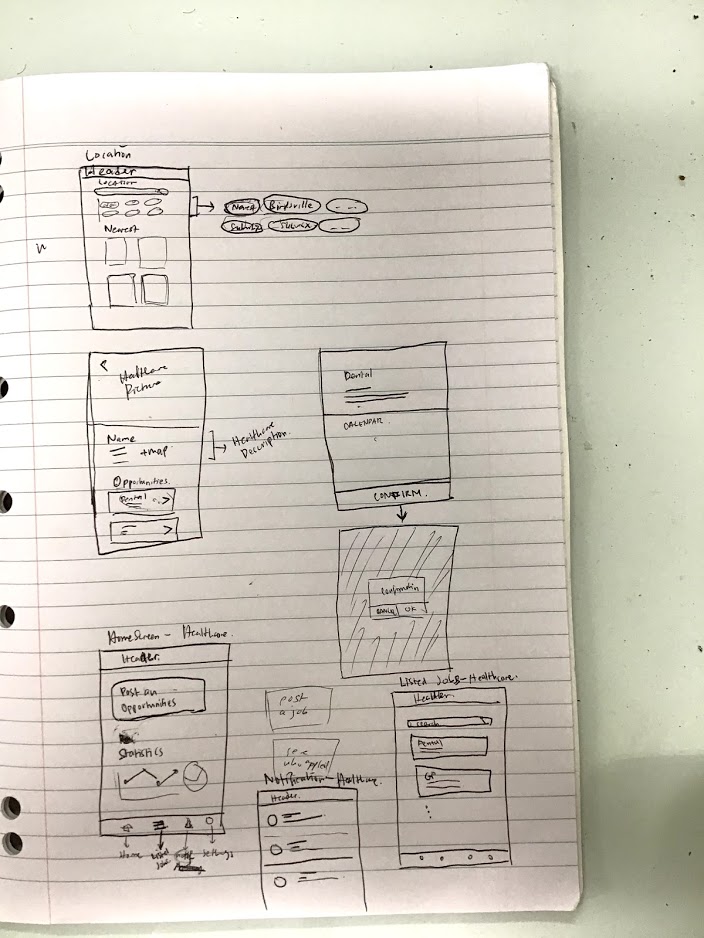 Location
Header
Location
Nearest
Nearest
Birdsville
- -
- -
Healthcare
Picture
Name
+map
Healthcare
Description.
Opportunities.
Dental
Dental
CALENDAR
CONFIRM.
Confirmation
CANCEL
OK
HomeScreen - Healthcare.
Header.
Post an
Opportunities
Statistics
Home
Settings
post
a job
see
who applied
Notification - Healthcare.
Header.
Listed Jobs - Healthcare.
Header.
Search
Dental
GP